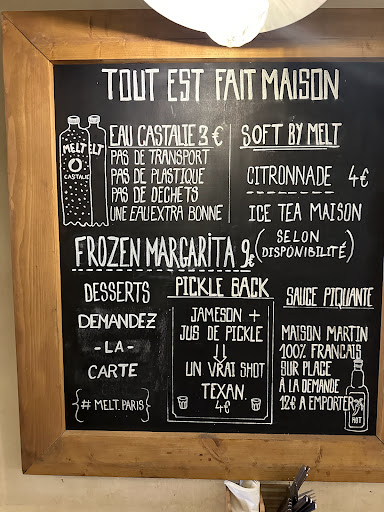 TOUT EST FAIT MAISON
MELT ELT
CASTALIE
EAU CASTALIE 3 €
PAS DE TRANSPORT
PAS DE PLASTIQUE
PAS DE DECHETS
UNE EAU EXTRA BONNE
SOFT BY MELT
CITRONNADE 4€
ICE TEA MAISON
(SELON
DISPONIBILITÉ)
FROZEN MARGARITA 9€
DESSERTS
DEMANDEZ
-LA-
CARTE
{# MELT.PARIS}
PICKLE BACK
JAMESON +
JUS DE PICKLE
⇓
UN VRAI SHOT
TEXAN.
4€
SAUCE PIQUANTE
MAISON MARTIN
100% FRANCAIS
SUR PLACE
À LA DEMANDE
12€ A EMPORTER
HOT